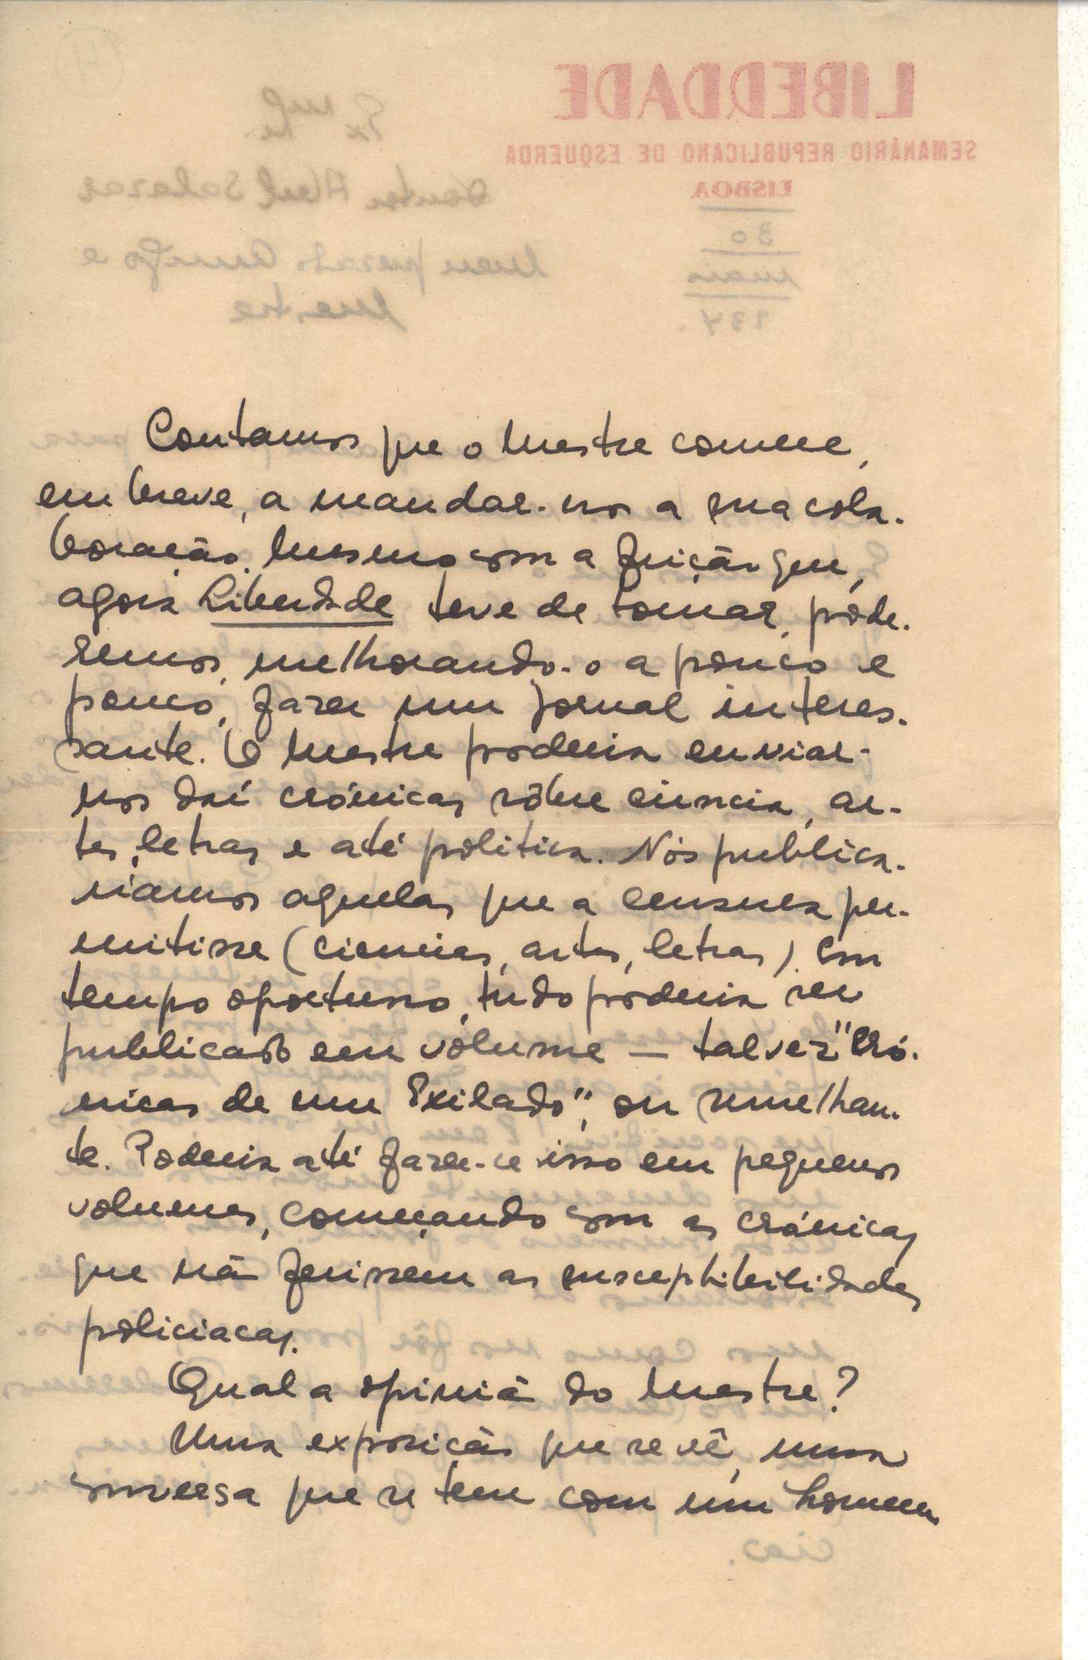 Contamos que o Mestre comece,
em breve, a mandar-nos a sua cola-
boração. Mesmo com a feição que,
agora Liberdade teve de tomar, pode-
remos, melhorando-o a pouco e
pouco, fazer um jornal interes-
sante. O Mestre poderia enviar-
nos daí crónicas sôbre ciencia, ar-
tes, letras e até politica. Nós publica-
riamos aquelas que a censura per-
mitisse (ciencias, artes, letras). Em
tempo oportuno, tudo poderia ser
publicado em volume — talvez "Cró-
nicas de um Exilado", ou semelhan-
te. Poderia até fazer-se isso em pequenos
volumes, começando com as crónicas
que não ferissem as susceptibilidades
policiacas.
Qual a opinião do Mestre?
Uma exposição que se vê, uma
conversa que se tem com um homem
LIBERDADE
SEMANÁRIO REPUBLICANO DE ESQUERDA
LISBOA
30
maio
934
Exmo
Doutor Abel Salazar
Meu prezado Amigo e
Mestre
cias.